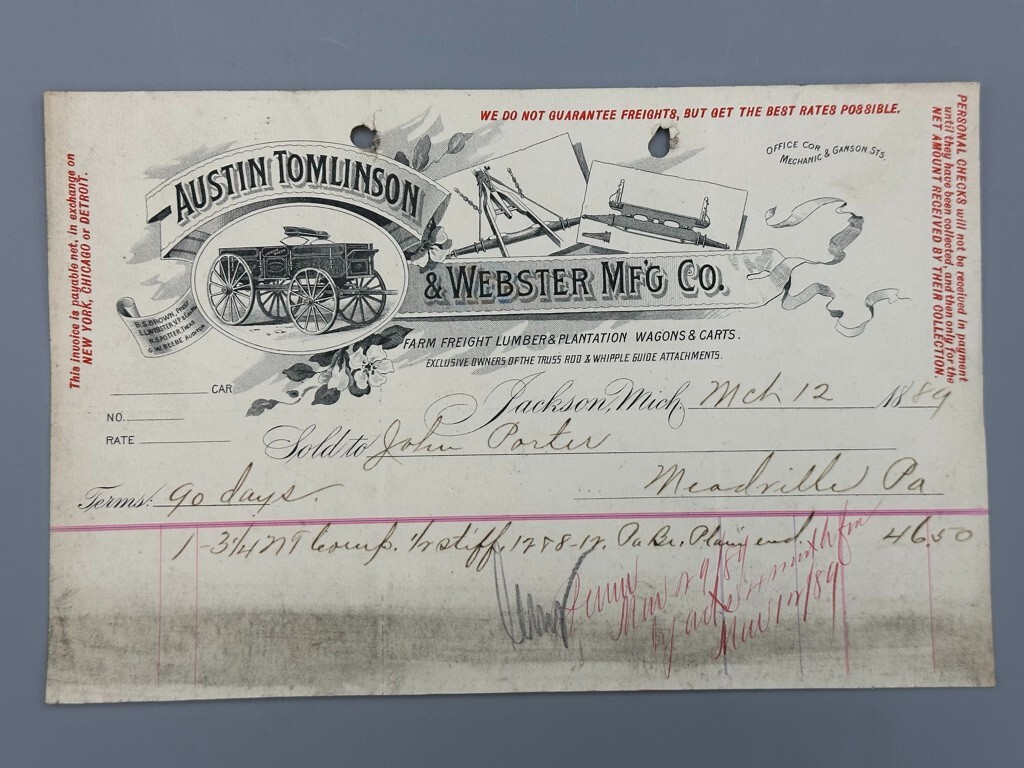 WE DO NOT GUARANTEE FREIGHTS, BUT GET THE BEST RATES POSSIBLE.
PERSONAL CHECKS will not be received in payment
until they have been collected, and then only for the
NET AMOUNT RECEIVED BY THEIR COLLECTION.
OFFICE COR.
MECHANIC & GANSON. STS.
This invoice is payable net, in exchange on
NEW YORK, CHICAGO or DETROIT.
AUSTIN TOMLINSON
& WEBSTER MF'G CO.
B.S. BROWN, PREST
E.L. WEBSTER, V.P. &
N.S. POTTER, TREAS
G.W. BEEBE AUDITOR
FARM FREIGHT LUMBER & PLANTATION WAGONS & CARTS.
EXCLUSIVE OWNERS OF THE TRUSS ROD & WHIPPLE GUIDE ATTACHMENTS.
CAR
NO.
RATE
Jackson, Mich. Mch 12 1889
Sold to John Porter
Meadville Pa
Terms: 90 days.
1 - 3 1/4 Comp. 1/2 stiff, Plain end. 46.50
Mar 29/89
Mar 12/89